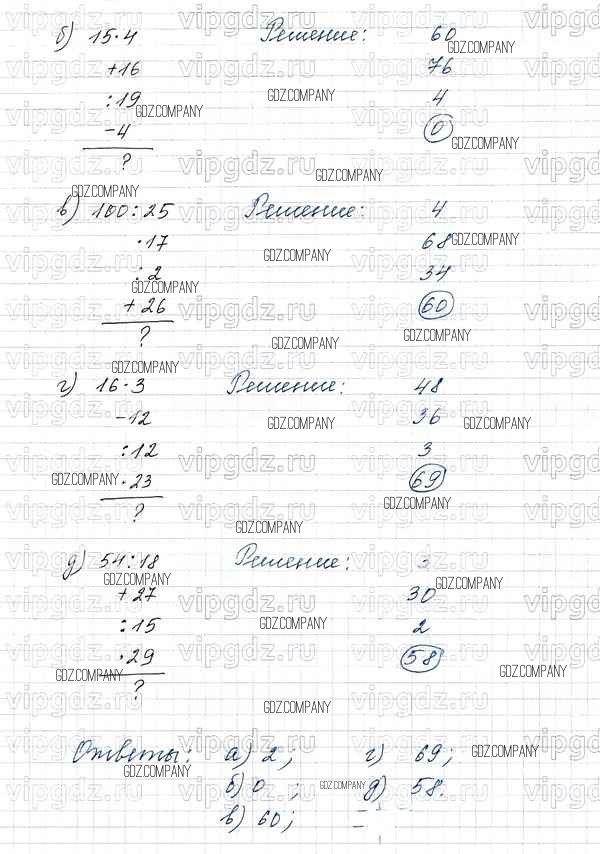 б) 15·4 Решение: 60
+16 76
:19 4
-4 0
?
в) 100:25 Решение: 4
·17 68
:2 34
+26 60
?
г) 16·3 Решение: 48
-12 36
:12 3
·23 69
?
д) 54:18 Решение: 3
+27 30
:15 2
·29 58
?
Ответы: а) 2; г) 69;
б) 0 ; д) 58.
в) 60;
vipgdz.ru
GDZ.COMPANY